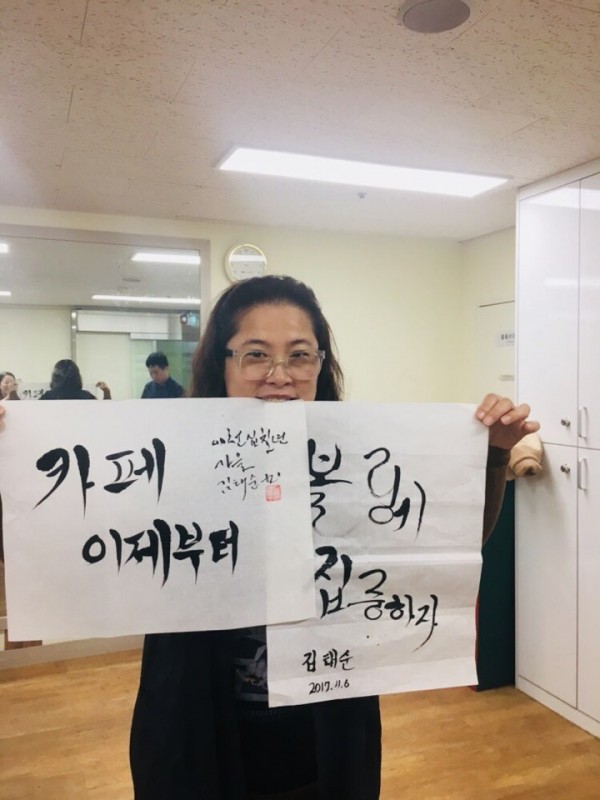 카페
이제부터
이천십칠년
가을
김태순
블로그에
집중하자
김태순
2017.11.6